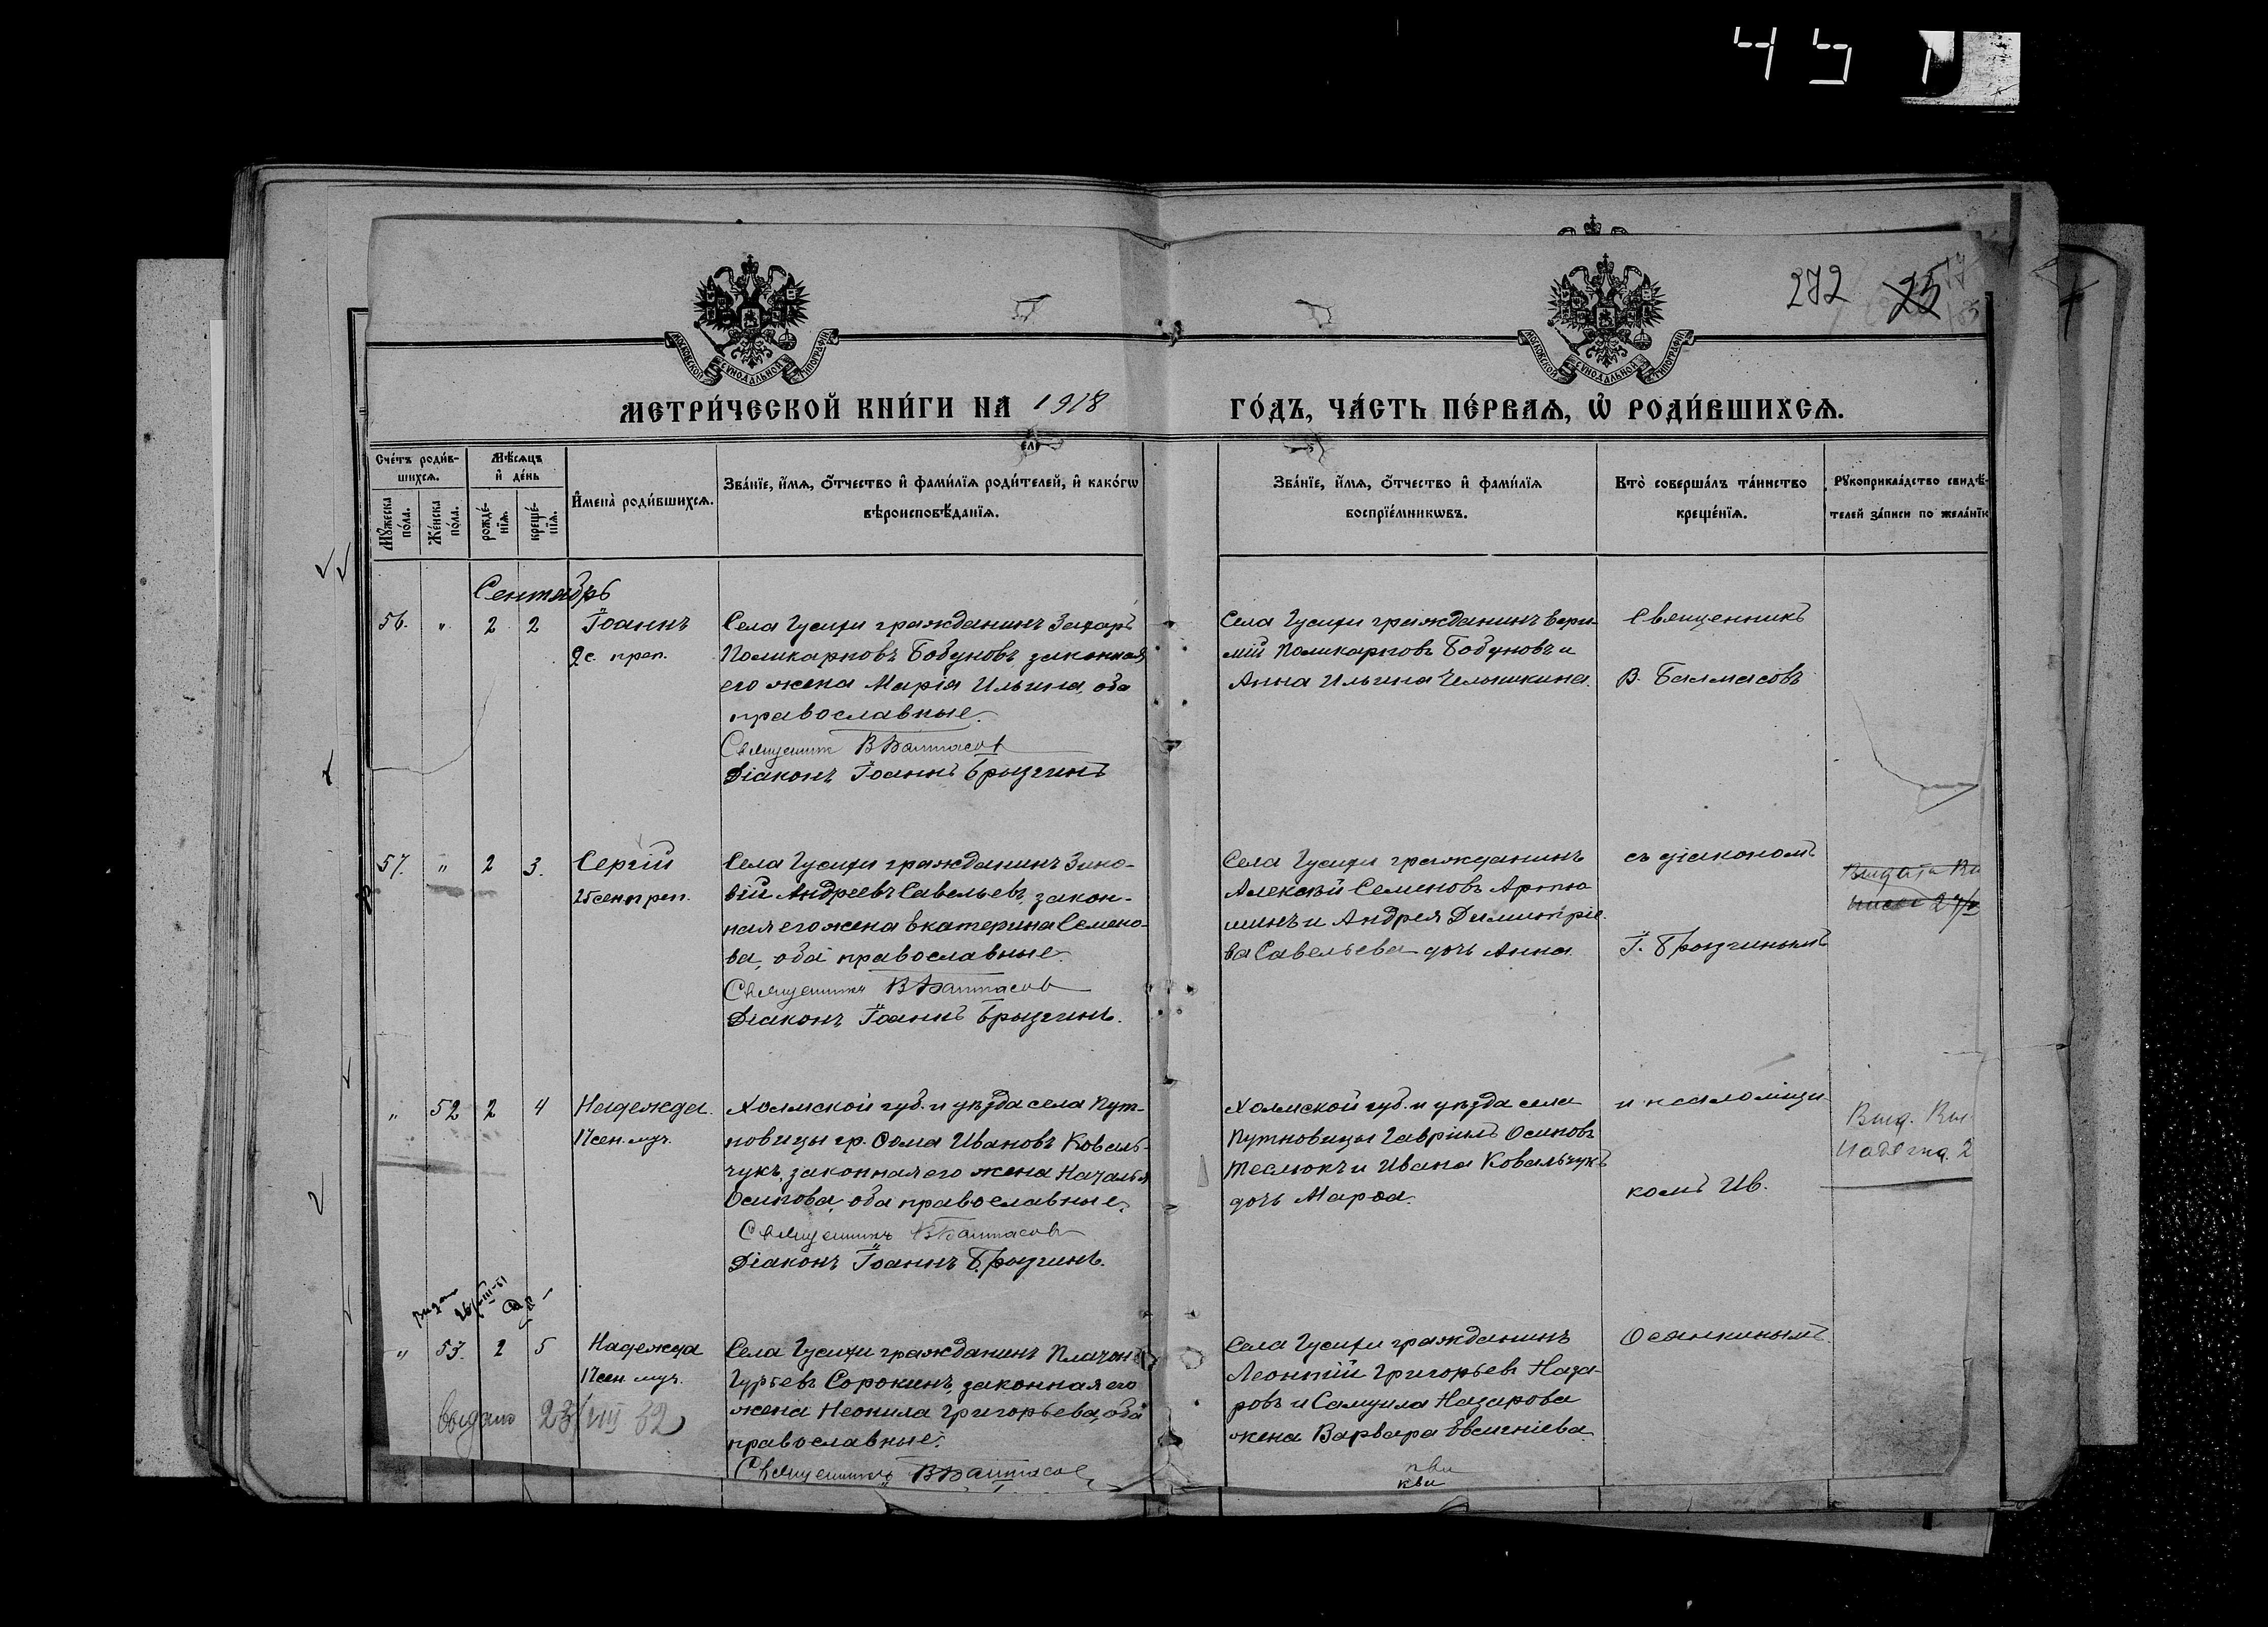 272 25
МОСКОВСКОЙ СѴНОДАЛЬНОЙ ТИПОГРАФІИ
МОСКОВСКОЙ СѴНОДАЛЬНОЙ ТИПОГРАФІИ
МЕТРИ́ЧЕСКОЙ КНИ́ГИ НА 1918 ГО́ДЪ, ЧА́СТЬ ПЕ́РВАѦ, Ѡ РОДИ́ВШИХСѦ.
Сче́тъ роди́в-
шихсѧ.
Мꙋ́жеска по́ла.
Же́нска по́ла.
Мѣ́сѧцъ
и де́нь
рожде́-
нїѧ.
креще́-
нїѧ.
Имена̀ роди́вшихсѧ.
Зва́нїе, и́мѧ, о́тчество и фами́лїѧ роди́телей, и како́гѡ
вѣроисповѣ́данїѧ.
Зва́нїе, и́мѧ, о́тчество и фами́лїѧ
воспрїе́мникѡвъ.
Кто̀ соверша́лъ та́инство
креще́нїѧ.
Рꙋкоприкла́дство свидѣ́-
телей за́писи по жела́нїю
Сентябрь
56. " 2 2 Іоаннъ
2 с. преп.
Села Гусихи гражданинъ Захаръ
Поликарповъ Бобуновъ, законная
его жена Марія Ильина, оба
православные.
Священникъ В Балмасов
Діаконъ Іоаннъ Брызгинъ
Села Гусихи гражданинъ
Поликарповъ Бобуновъ и
Анна Ильина
Священникъ
В. Балмасовъ
57. " 2 3. Сергій
25 сент. преп.
Села Гусихи гражданинъ Зино-
вій Андреевъ Савельевъ, закон-
ная его жена Екатерина Семено-
ва, оба православные.
Священникъ В Балмасов
Діаконъ Іоаннъ Брызгинъ.
Села Гусихи гражданинъ
Алексѣй Семеновъ Артю-
шинъ и Андрея Димитріе-
ва Савельева дочь Анна.
съ діакономъ
І. Брызгинымъ
" 52 2 4 Надежда.
17 сен. муч.
Холмской губ. и уѣзда села Пут-
новицы гр. Ѳома Ивановъ Коваль-
чукъ, законная его жена Наталья
Осипова, оба православные.
Священникъ В Балмасов
Діаконъ Іоаннъ Брызгинъ.
Холмской губ. и уѣзда села
Путновицы Гавріилъ Осиповъ
Теслюкъ и Ивана Ковальчукъ
дочь Марѳа.
и псаломщи-
комъ Ив.
Выд.
" 53. 2 5 Надежда
17 сен. муч.
выдано 23/VIII 32
Села Гусихи гражданинъ Платонъ
Гурьевъ Сорокинъ, законная его
жена Неонила Григорьева, оба
православные.
Священникъ В Балмасов
Села Гусихи гражданинъ
Леонтій Григорьевъ Наза-
ровъ и Самуила Назарова
жена Варвара Евсигніева.
Осянкинымъ.